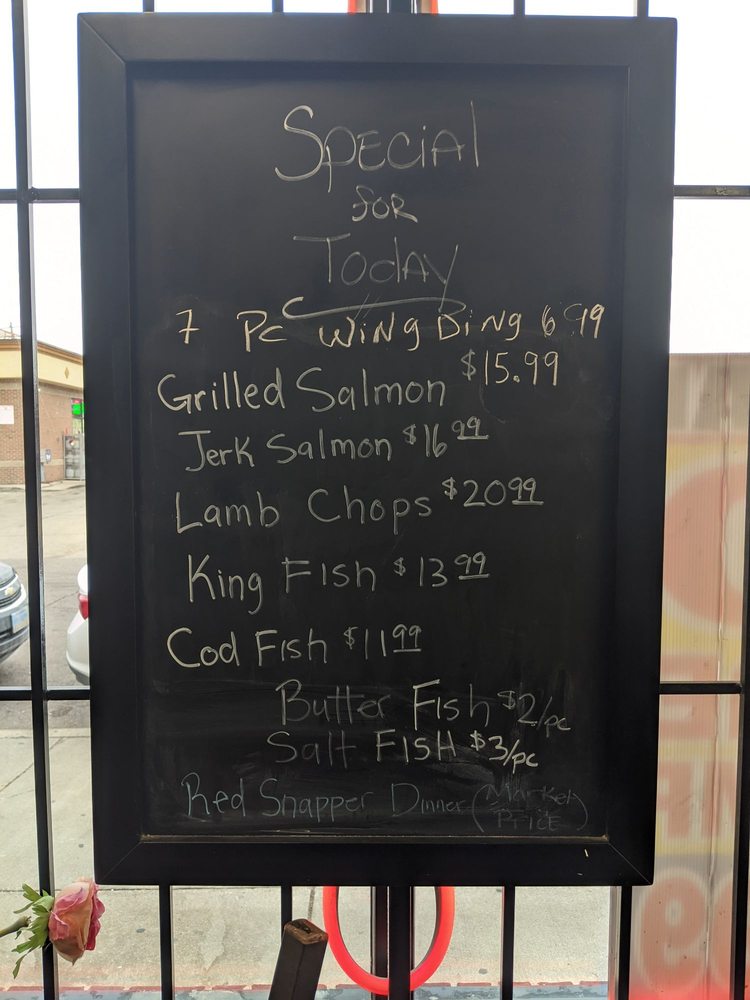 Special
for
Today
7 Pc Wing Ding 6.99
Grilled Salmon $15.99
Jerk Salmon $16 99
Lamb Chops $20 99
King Fish $13 99
Cod Fish $11 99
Butter Fish $2/pc
Salt FISH $3/pc
Red Snapper Dinner (Market
PRICE)